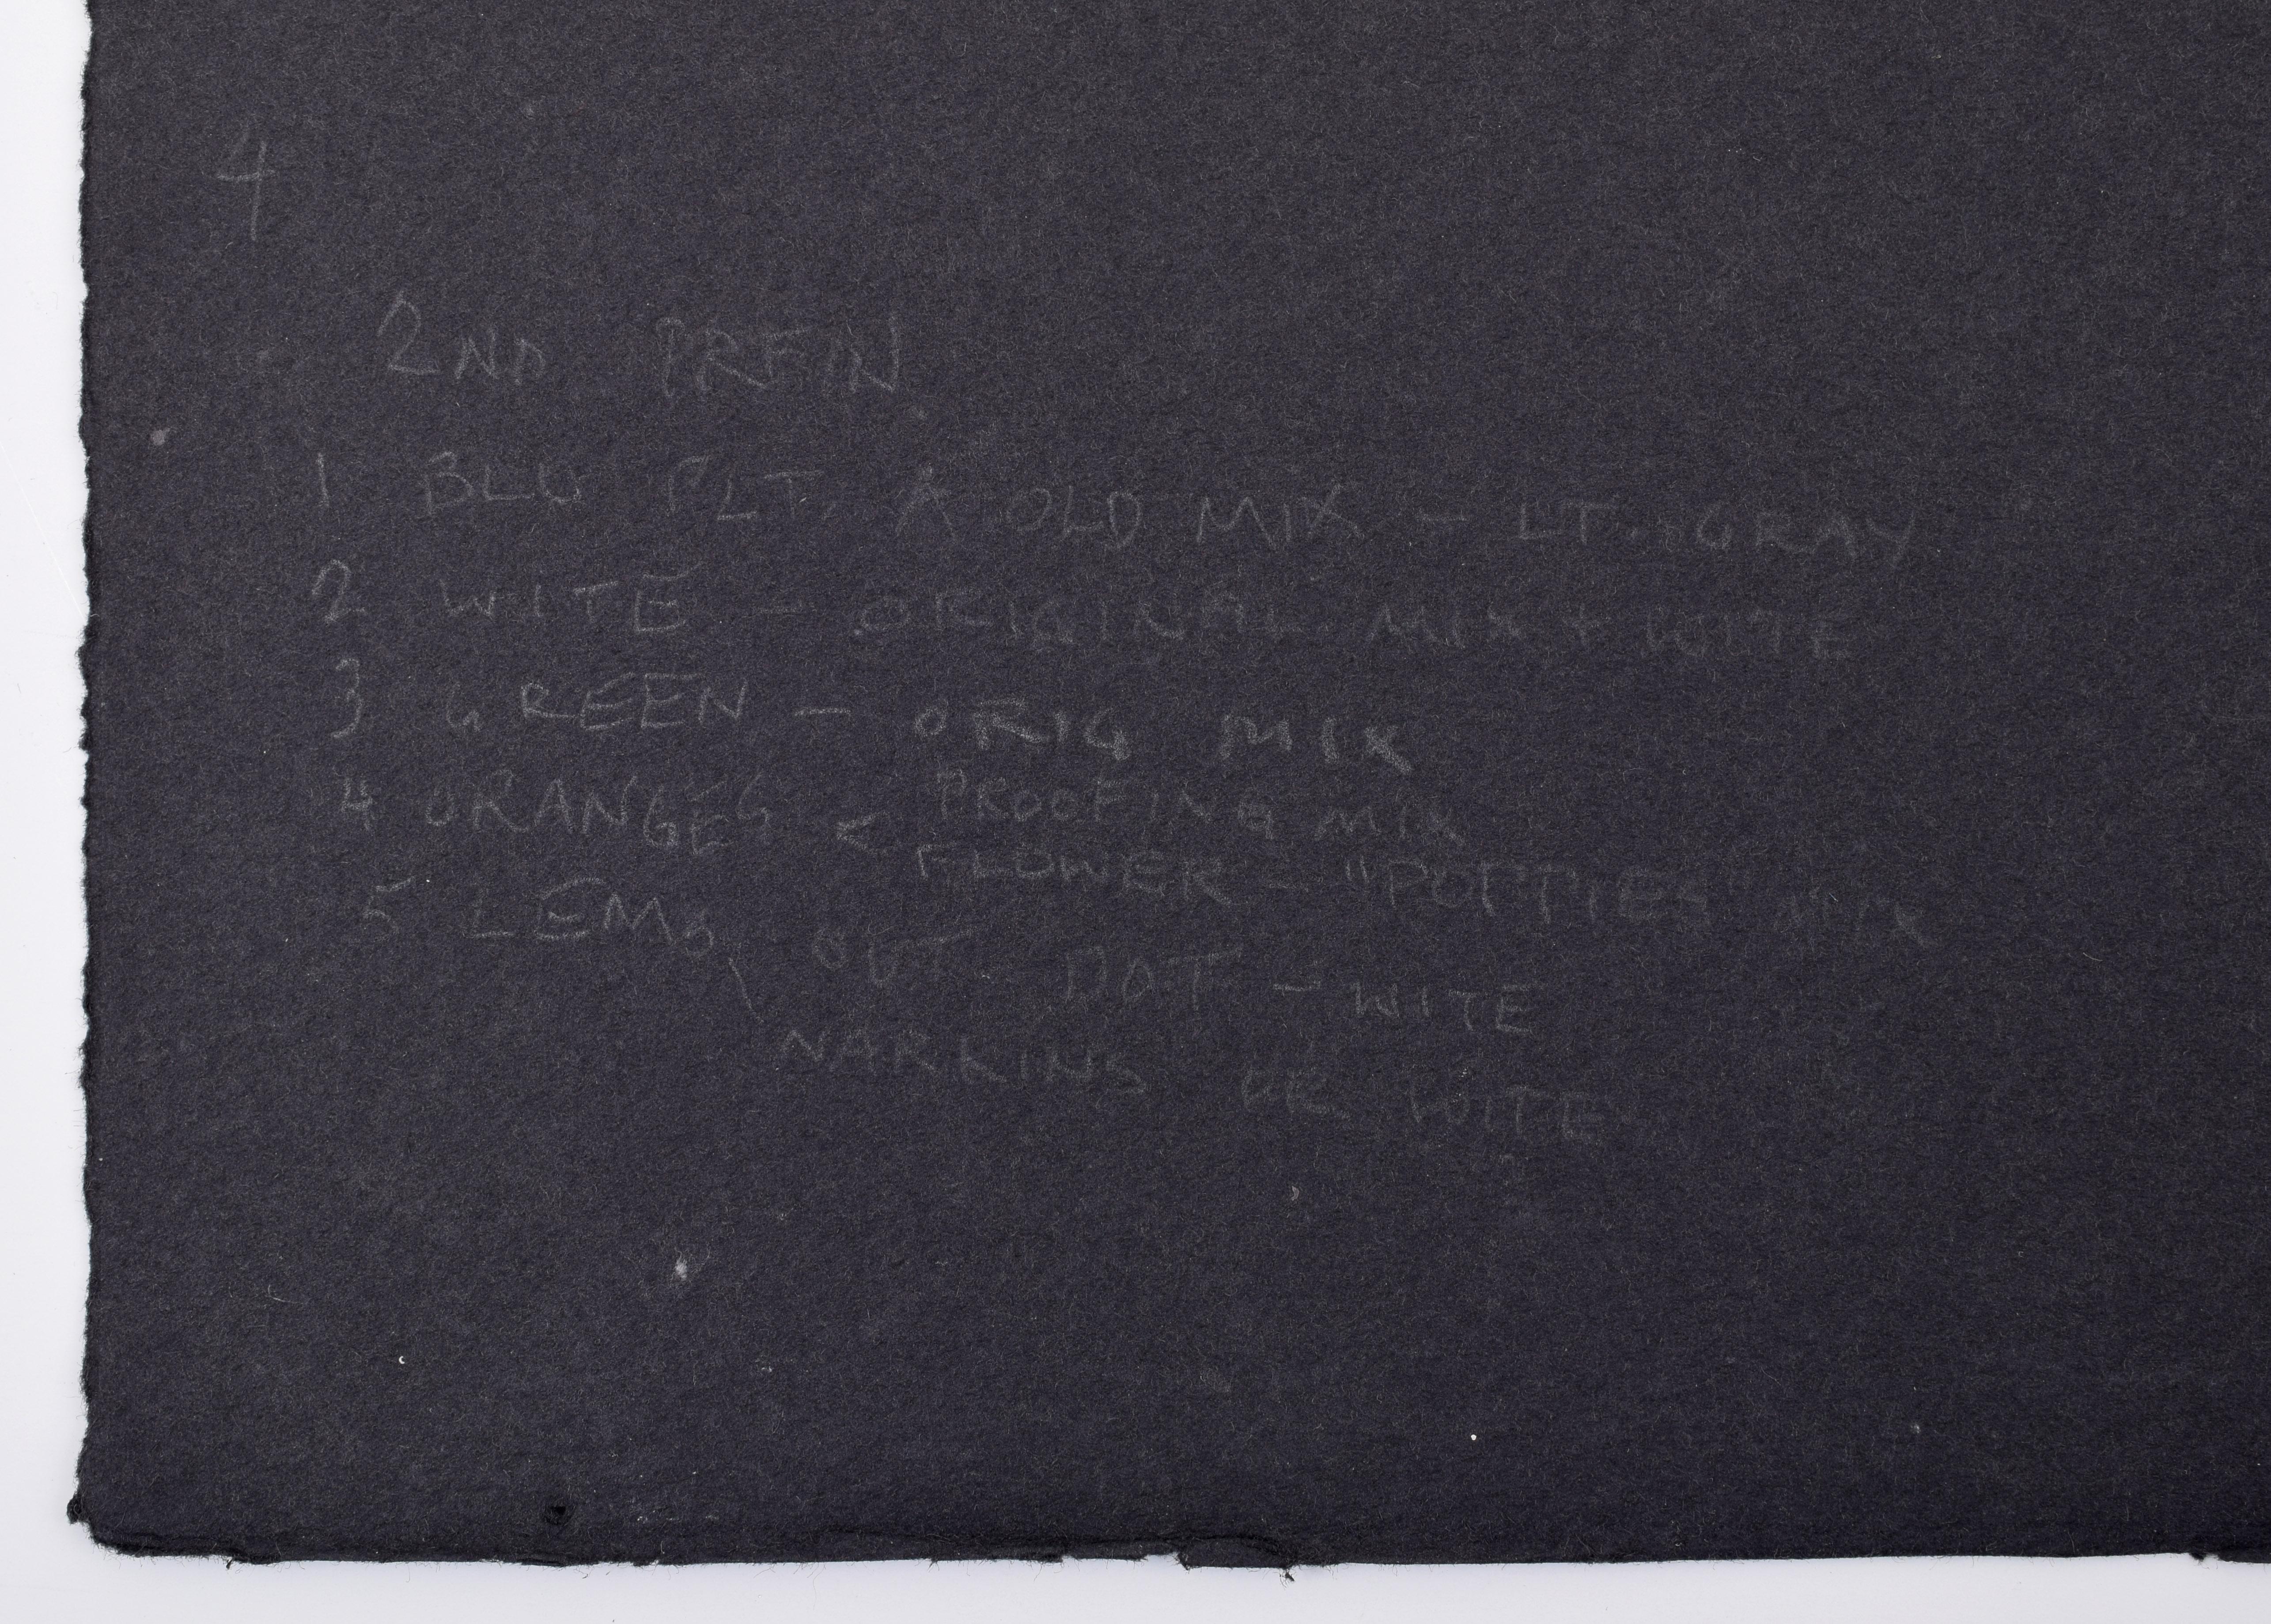 4
2ND PREIN
1 BLU PLT. A OLD MIX - LT. GRAY
2 WITE - ORIGINAL MIX + WITE
3 GREEN - ORIG MIX
4 ORANGES < PROOFING MIX
FLOWER - "POTTIES" MIX
5 LEMS OUT DOT - WITE
NAPKINS WITE